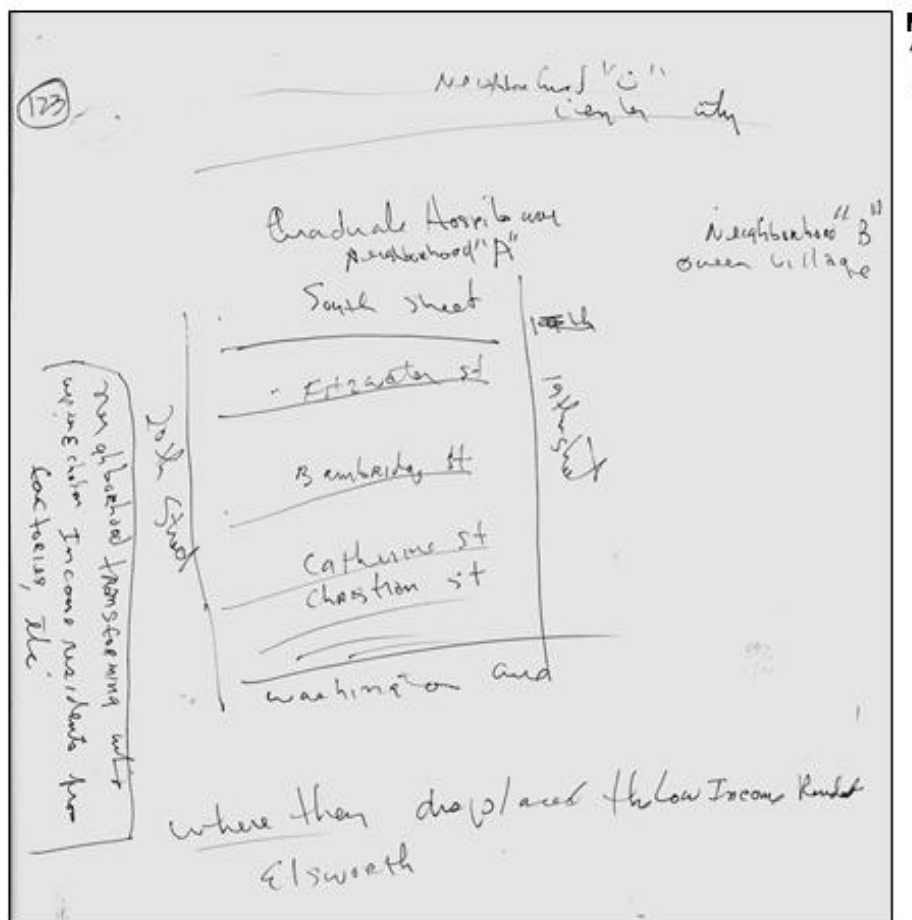 123
Neighborhood "C"
Center city
Graduate Hospital area
Neighborhood "A"
Neighborhood "B"
Queen Village
South street
Fitzwater st
Bambridge St
Catherine st
Christian st
Washington
20th Street
19th street
neighborhood transforming
Income residents from
factories, etc
where they displaced the Low Income
Elsworth